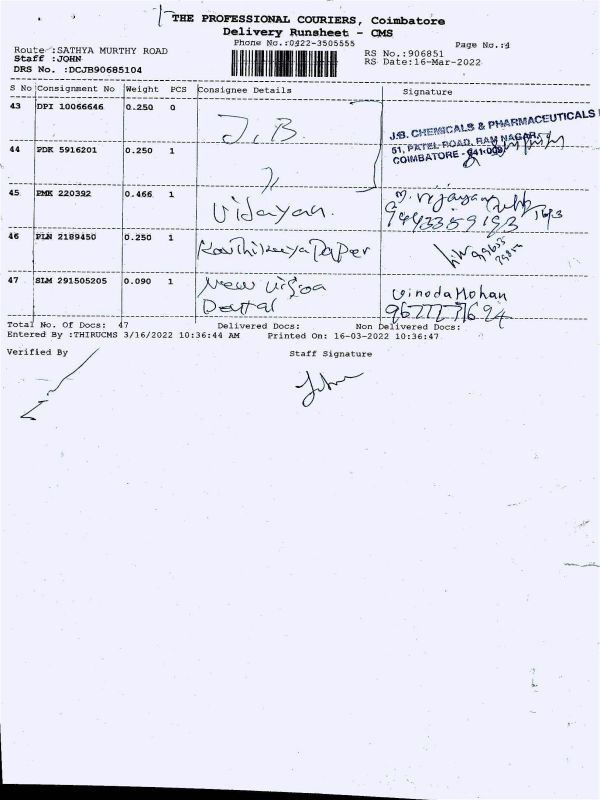 THE PROFESSIONAL COURIERS, Coimbatore
Delivery Runsheet - CMS
Phone No.:0422-3505555
Page No.:4
Route :SATHYA MURTHY ROAD
Staff :JOHN
DRS No. :DCJB90685104
RS No.:906851
RS Date:16-Mar-2022
S No Consignment No Weight PCS Consignee Details Signature
43 DPI 10066646 0.250 0 J.B. J.B. CHEMICALS & PHARMACEUTICALS
51, PATEL ROAD, RAM NAGAR,
COIMBATORE - 641-009
44 PDK 5916201 0.250 1 ))
45 PMK 220392 0.466 1 Vijayan. M. Vijayan
9443359193 16/3
46 PLN 2189450 0.250 1 Karthikeya Paper
47 SLM 291505205 0.090 1 New Vision Dental
Vinoda Mohan
Total No. Of Docs: 47 Delivered Docs: Non Delivered Docs:
Entered By :THIRUCMS 3/16/2022 10:36:44 AM Printed On: 16-03-2022 10:36:47
Verified By Staff Signature
John